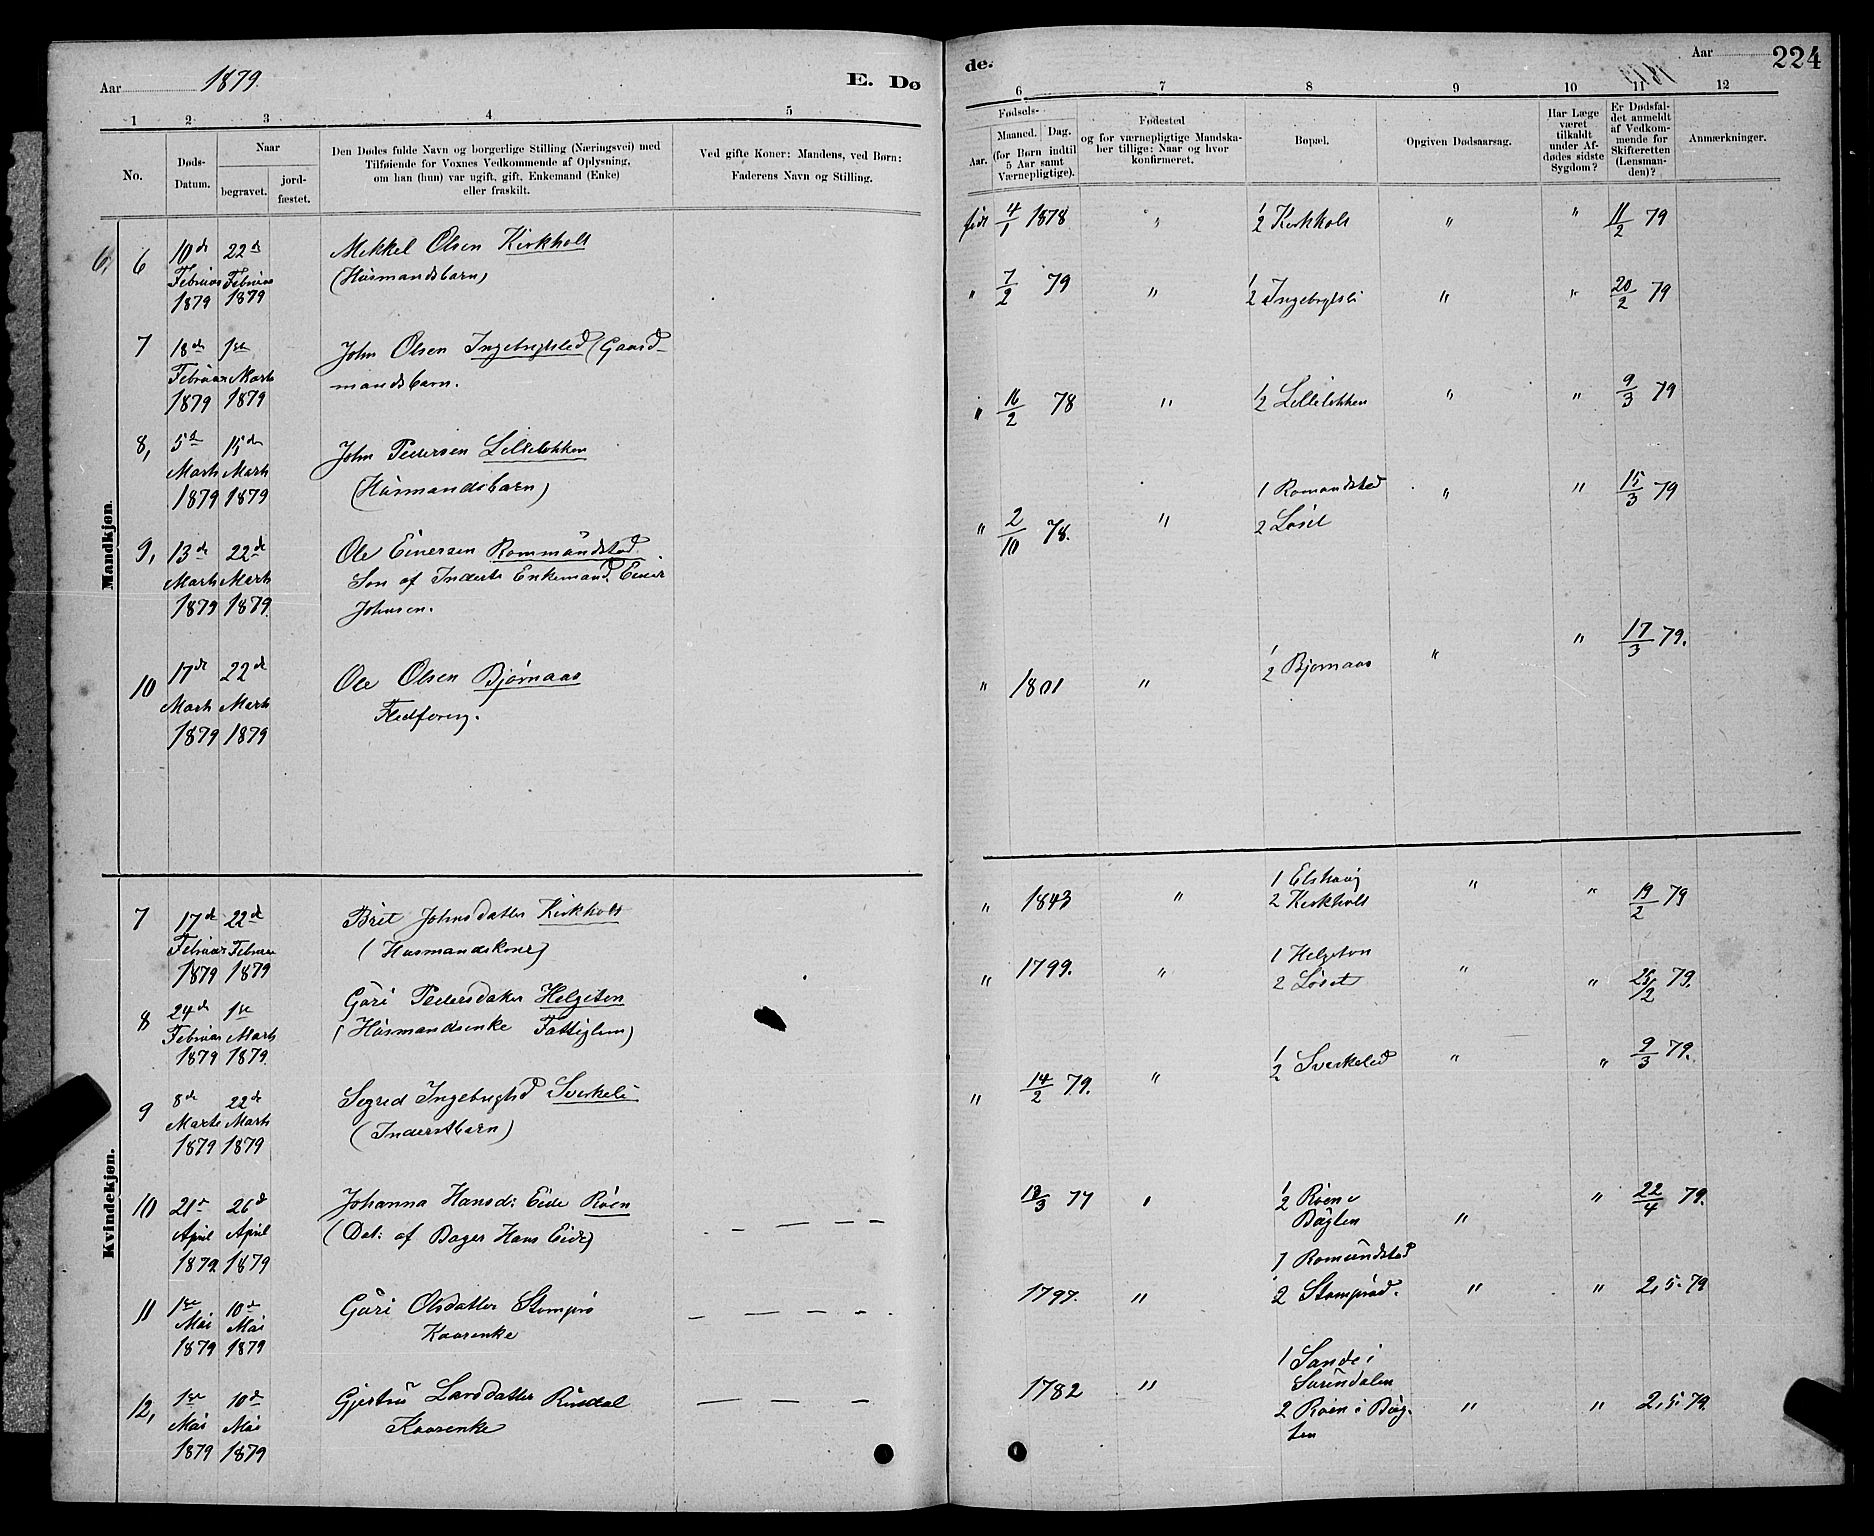 Aar 1879.
E. Dø
de.
Aar
224
1 2 3 4 5
6 7 8 9 10 11 12
No.
Døds-
Datum.
Naar
begravet.
jord-
fæstet.
Den Dødes fulde Navn og borgerlige Stilling (Næringsvei) med
Tilføiende for Voxnes Vedkommende af Oplysning,
om han (hun) var ugift, gift, Enkemand (Enke)
eller fraskilt.
Ved gifte Koner: Mandens, ved Børn:
Faderens Navn og Stilling.
Fødsels-
Aar.
Maaned. Dag.
(for Børn indtil
5 Aar samt
Værnepligtige).
Fødested
og for værnepligtige Mandska-
ber tillige: Naar og hvor
konfirmeret.
Bopæl.
Opgiven Dødsaarsag.
Har Læge
været
tilkaldt
under Af-
dødes sidste
Sygdom?
Er Dødsfal-
det anmeldt
af Vedkom-
mende for
Skifteretten
(Lensman-
den)?
Anmærkninger.
Mandkjøn.
6, 6 10de Februar 1879 22de Februar 1879
Mekkel Olsen Kirkholt
(Husmandsbarn)
født 4/1 1878 " 1/2 Kirkholt " " 11/2 79
7 18de Februar 1879 1ste Marts 1879
John Olsen Ingebrigtsled (Gaard-
mandsbarn.
" 7/2 79 " 1/2 Ingebrigtsli " " 20/2 79
8, 5te Marts 1879 15de Marts 1879
John Pedersen Lilleløkken
(Husmandsbarn)
" 16/2 78 " 1/2 Lilleløkken " " 9/3 79
9, 13de Marts 1879 22de Marts 1879
Ole Einersen Rommundstad
Søn af Inderst Enkemand Einer
Johnsen.
" 2/10 78. " 1 Romundstad
2 Løset " " 15/3 79
10 17de Marts 1879 22de Marts 1879
Ole Olsen Bjørnaas
Fledføring.
" 1801 " 1/2 Bjørnaas " " 17/3 79.
Kvindekjøn.
7 17de Februar 1879 22de Februar 1879
Brit Johnsdatter Kirkholt
(Husmandskone)
" 1843 " 1 Elshaug
2 Kirkholt " " 19/2 79
8 24de Februar 1879 1ste Marts 1879
Guri Pedersdatter Helgeton
(Husmandsenke Fattiglem)
" 1799. " 1 Helgeton
2 Løset " " 25/2 79.
9 8de Marts 1879 22de Marts 1879
Segred Ingebrigtsd Sverkeli
(Inderstbarn)
" 14/2 79. " 1/2 Sverkeled " " 9/3 79.
10 21de April 1879 26de April 1879
Johanna Hansd: Eide Røen
(Dat: af Bager Hans Eide)
13/3 77 " 1/2 Røen i
Bøgten " " 22/4 79.
11 1ste Mai 1879 10de Mai 1879
Guri Olsdatter Stomprø
Kaarenke
1797. " 1 Romundstad
2 Stomprød. " " 2,5.79
12, 1ste Mai 1879 10de Mai 1879
Gjertru Larsdatter Rindal
Kaarenke
1782 " 1 Sande i
Surendalen
2 Røen i Bøg-
ten " " 2,5.79.